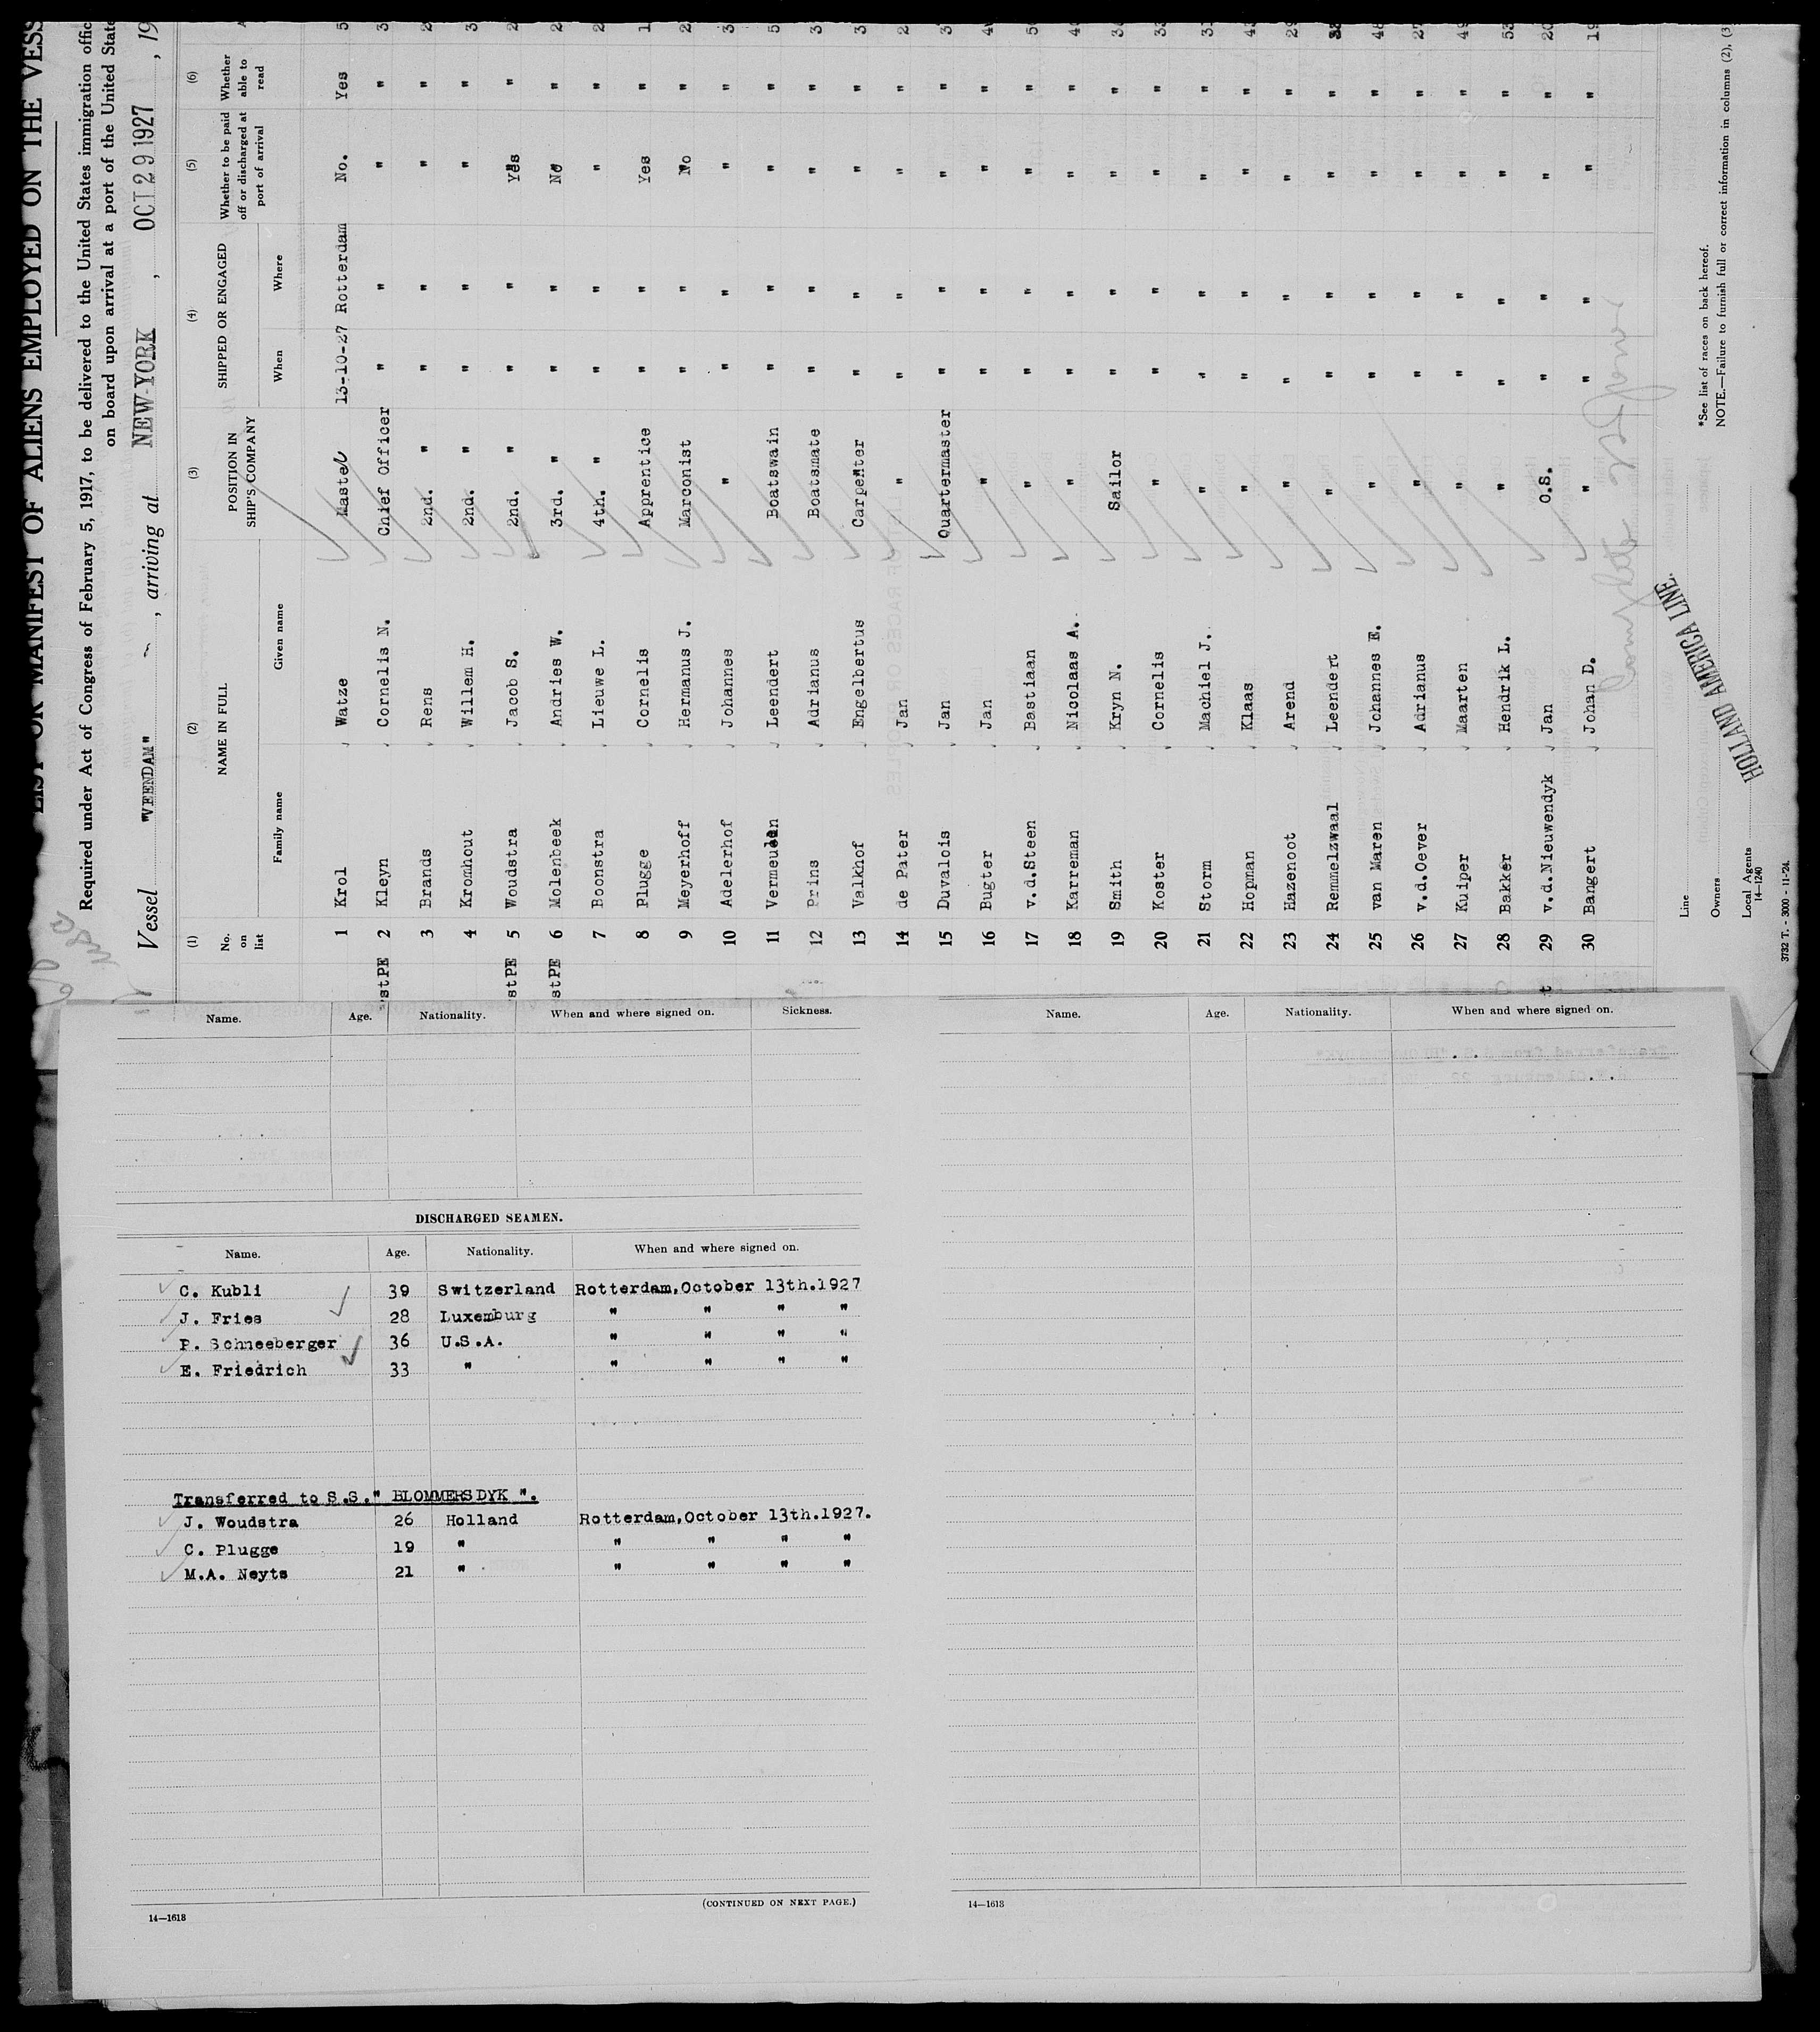 LIST OR MANIFEST OF ALIENS EMPLOYED ON THE VESS
Required under Act of Congress of February 5, 1917, to be delivered to the United States immigration offic
on board upon arrival at a port of the United State
Vessel "VEENDAM" , arriving at NEW YORK , OCT 29 1927 , 19
(1) (2) (3) (4) (5) (6)
No. on list NAME IN FULL POSITION IN SHIP'S COMPANY SHIPPED OR ENGAGED Whether to be paid off or discharged at port of arrival Whether able to read A
Family name Given name When Where
1 Krol Watze Master 13-10-27 Rotterdam No. Yes 5
stPE 2 Kleyn Cornelis N. Chief Officer " " " " 3
3 Brands Rens 2nd. " " " " " 2
4 Kromhout Willem H. 2nd. " " " " " 3
stPE 5 Woudstra Jacob S. 2nd. " " " Yes " 2
stPE 6 Molenbeek Andries W. 3rd. " " " No " 2
7 Boonstra Lieuwe L. 4th. " " " " " 2
8 Plugge Cornelis Apprentice " " Yes " 1
9 Meyerhoff Hermanus J. Marconist " " No " 2
10 Adelerhof Johannes " " " " " 3
11 Vermeulen Leendert Boatswain " " " " 5
12 Prins Adrianus Boatsmate " " " " 3
13 Valkhof Engelbertus Carpenter " " " " 3
14 de Pater Jan " " " " " 2
15 Duvalois Jan Quartermaster " " " " 3
16 Bugter Jan " " " " " 4
17 v.d.Steen Bastiaan " " " " " 5
18 Karreman Nicolaas A. " " " " " 4
19 Smith Kryn N. Sailor " " " " 3
20 Koster Cornelis " " " " " 33
21 Storm Machiel J. " " " " " 31
22 Hopman Klaas " " " " " 43
23 Hazenoot Arend " " " " " 29
24 Remmelzwaal Leendert " " " " "
25 van Maren Johannes E. " " " " " 48
26 v.d.Oever Adrianus " " " " " 27
27 Kuiper Maarten " " " " " 49
28 Bakker Hendrik L. " " " " " 53
29 v.d.Nieuwendyk Jan O.S. " " " " 20
30 Bangert Johan D. " " " " " 19
Line
Owners
Local Agents
14—1240
HOLLAND AMERICA LINE.
*See list of races on back hereof.
NOTE.—Failure to furnish full or correct information in columns (2), (3
3732 T. - 3000 - 11-'24.
Name. Age. Nationality. When and where signed on. Sickness.
DISCHARGED SEAMEN.
Name. Age. Nationality. When and where signed on.
C. Kubli 39 Switzerland Rotterdam,October 13th.1927
J. Fries 28 Luxemburg " " " "
P. Schneeberger 36 U.S.A. " " " "
E. Friedrich 33 " " " " "
Transferred to S.S." BLOMMERSDYK ".
J. Woudstra 26 Holland Rotterdam,October 13th.1927.
C. Plugge 19 " " " " "
M.A. Neyts 21 " " " " "
(CONTINUED ON NEXT PAGE.)
14—1618
Name. Age. Nationality. When and where signed on.
14—1618